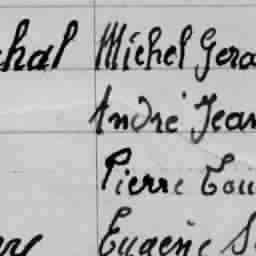 chal Michel Gera
André Jean
Pierre Loui
Eugène S